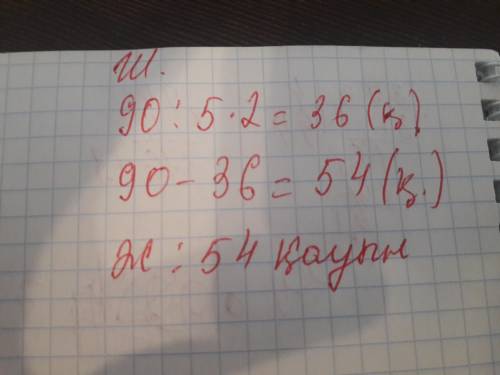 Ш.
90 : 5 · 2 = 36 (қ)
90 - 36 = 54 (қ.)
Ж : 54 қауын